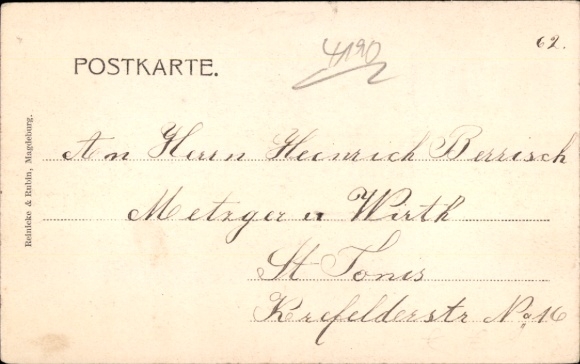 62.
4190
POSTKARTE.
An Herrn Heinrich Berrisch
Metzger u Wirth
St Tonis
Krefelderstr No 16
Reinicke & Rubin, Magdeburg.